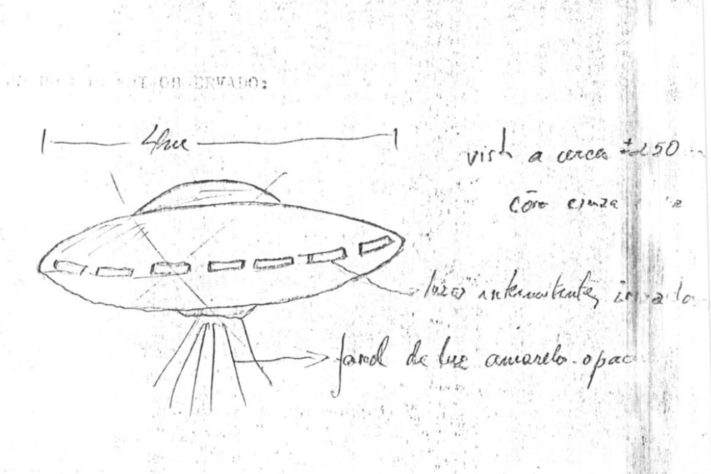 OBSERVADO:
4m
vista a cerca ±250
côr cinza
luzes intermitentes
farol de luz amarelo-opac